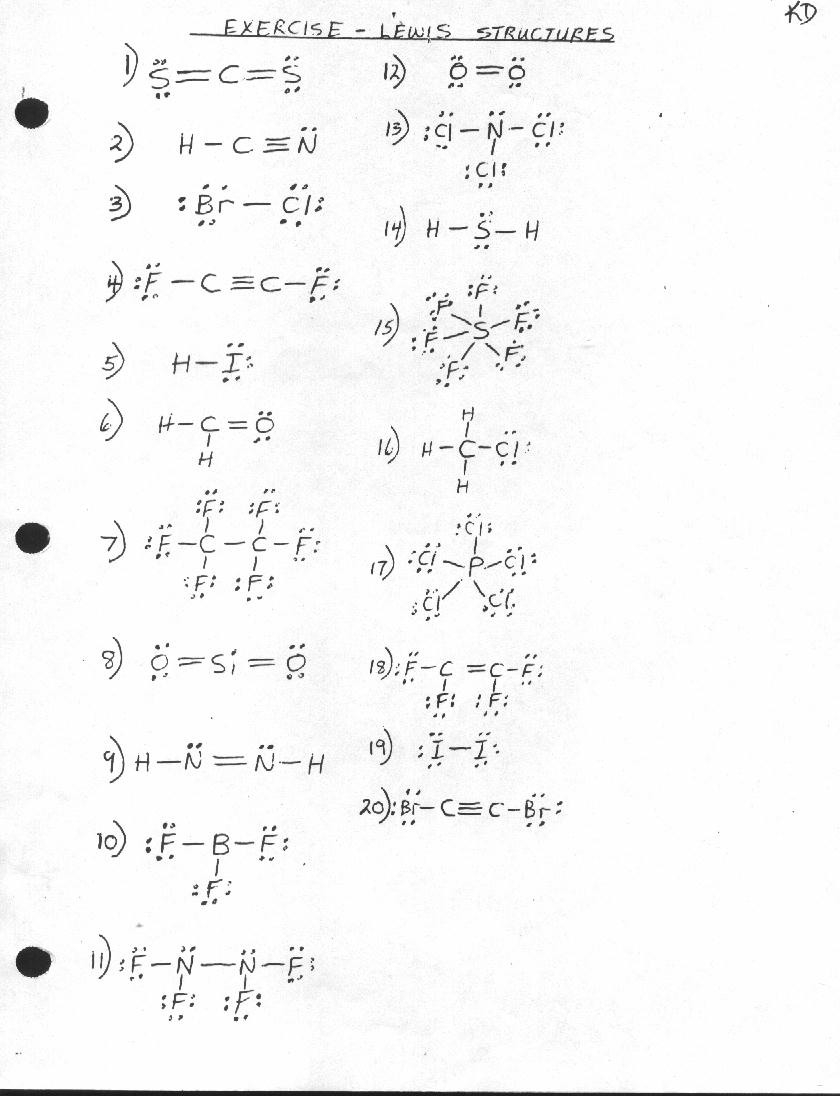 KD
EXERCISE - LEWIS STRUCTURES
1) S=C=S
2) H-C≡N
3) Br-Cl
4) F-C≡C-F
5) H-I
6) H-C=O
H
7) F F
F-C-C-F
F F
8) O=Si=O
9) H-N=N-H
10) F-B-F
F
11) F-N-N-F
F F
12) O=O
13) Cl-N-Cl
Cl
14) H-S-H
15) F
F F
F S
F F
16) H
H-C-Cl
H
17) Cl
Cl-P-Cl
Cl Cl
18) F-C=C-F
F F
19) I-I
20) Br-C≡C-Br